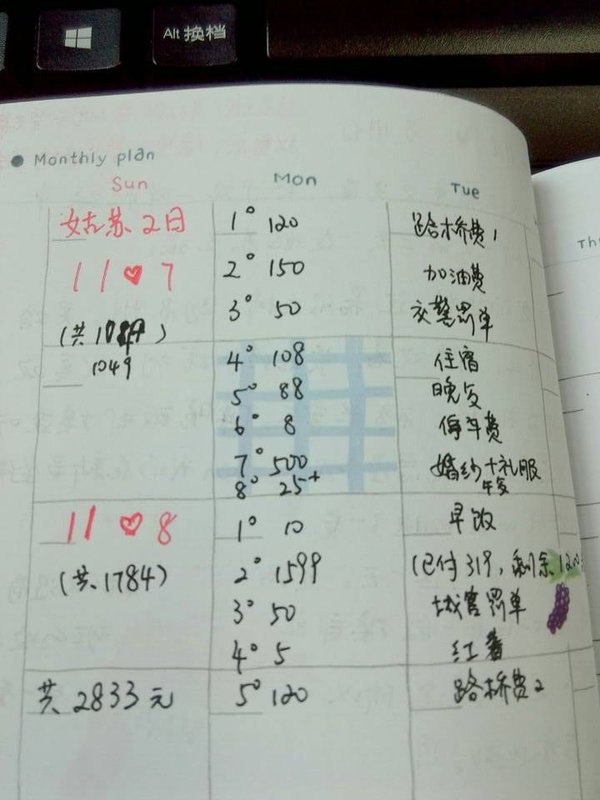 Alt 换档
Monthly plan
Sun Mon Tue
Thu
姑苏2日 1° 120 路桥费1
11♥7 2° 150 加油费
3° 50 交警罚单
(共1049)
1049
4° 108 住宿
5° 88 晚饭
6° 8 停车费
7° 500 婚纱+礼服
8° 25+ 午饭
11♥8 1° 10 早饭
(共1784) 2° 1599 (已付319,剩余12
3° 50 城管罚单
4° 5 红薯
共2833元 5° 120 路桥费2